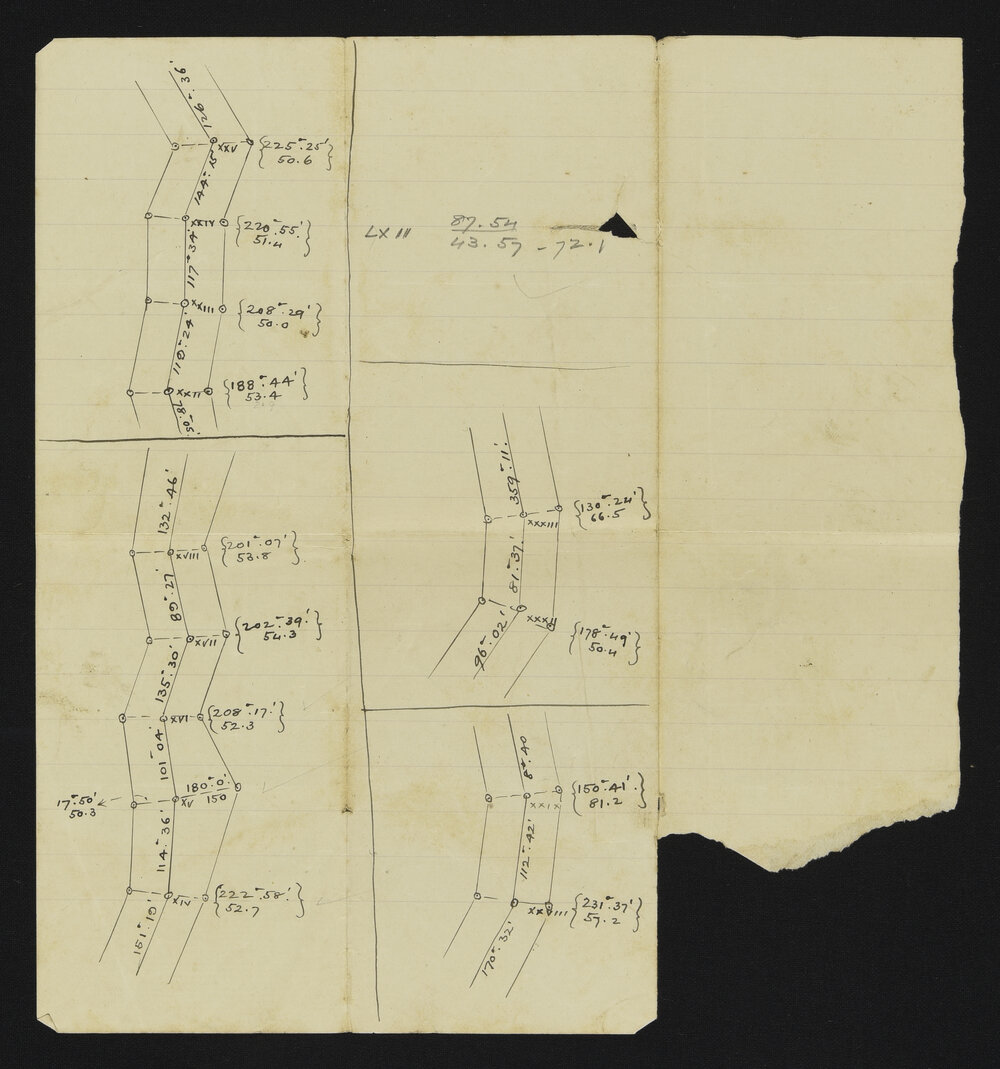 126°.36'
XXV {225°.25'}
50.6
144°.15'
XXIV {220°.55'}
51.4
117°.34'
XXIII {208°.29'}
50.0
110°.24'
XXII {188°.44'}
53.4
132°.46'
XVIII {201°.07'}
53.8
89°.27'
XVII {202°.39'}
54.3
135°.30'
XVI {208°.17'}
52.3
101°04'
180°.0'
150
XV
17°.50'
50.3
114°.36'
XIV {222°.58'}
52.7
151°.19'
LXIII 87.54
43.57 - 72.1
359°.11'
XXXIII {130°.24'}
66.5
81°.37'
XXXII {178°.49'}
50.4
96°.02'
8°.40
XXIX {150°.41'}
81.2
112°.42'
XXVIII {231°.37'}
57.2
170°.32'